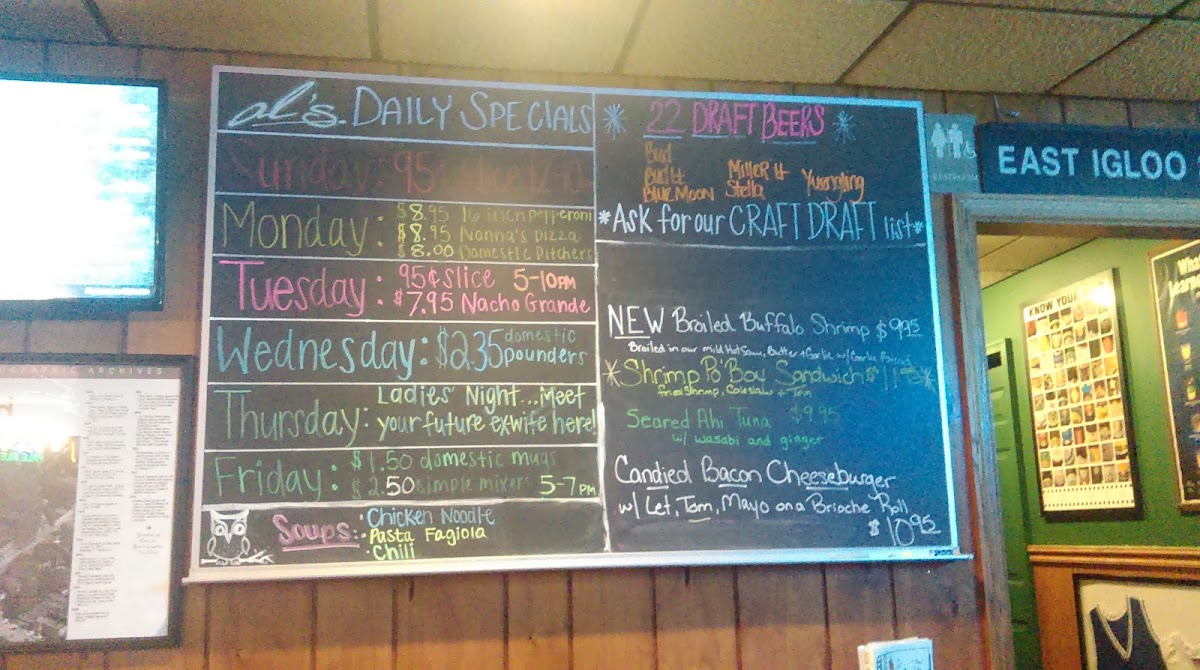 al's. DAILY SPECIALS
Sunday: 95¢ slice 12-10
Monday: $8.95 16 inch pepperoni
$8.95 Nonna's pizza
$8.00 Domestic Pitchers
Tuesday: 95¢ slice 5-10PM
$7.95 Nacho Grande
Wednesday: $2.35 domestic pounders
Thursday: Ladies' Night...Meet
your future ex-wife here!
Friday: $1.50 domestic mugs
$2.50 simple mixers 5-7PM
Soups: • Chicken Noodle
• Pasta Fagiola
• Chili
* 22 DRAFT BEERS *
Bud
Bud Lt Miller Lt
Blue Moon Stella Yuengling
*Ask for our CRAFT DRAFT list*
NEW Broiled Buffalo Shrimp $9.95
Broiled in our mild Hot Sauce, Butter + Garlic w/
*Shrimp Po'Boy Sandwich $11.95*
fried Shrimp, Coleslaw + Tom
Seared Ahi Tuna $9.95
w/ wasabi and ginger
Candied Bacon Cheeseburger
w/ Let, Tom, Mayo on a Brioche Roll
$10.95
RESTROOMS
EAST IGLOO
KNOW YOUR
GRAPHIC ARCHIVES